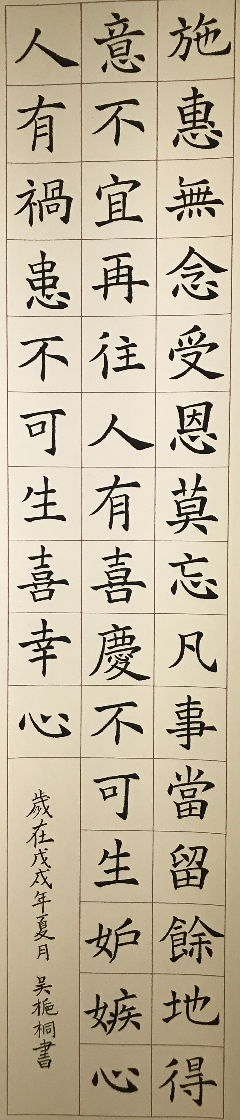 施惠無念受恩莫忘凡事當留餘地得
意不宜再往人有喜慶不可生妒嫉心
人有禍患不可生喜幸心
歲在戊戌年夏月 吴栀桐書